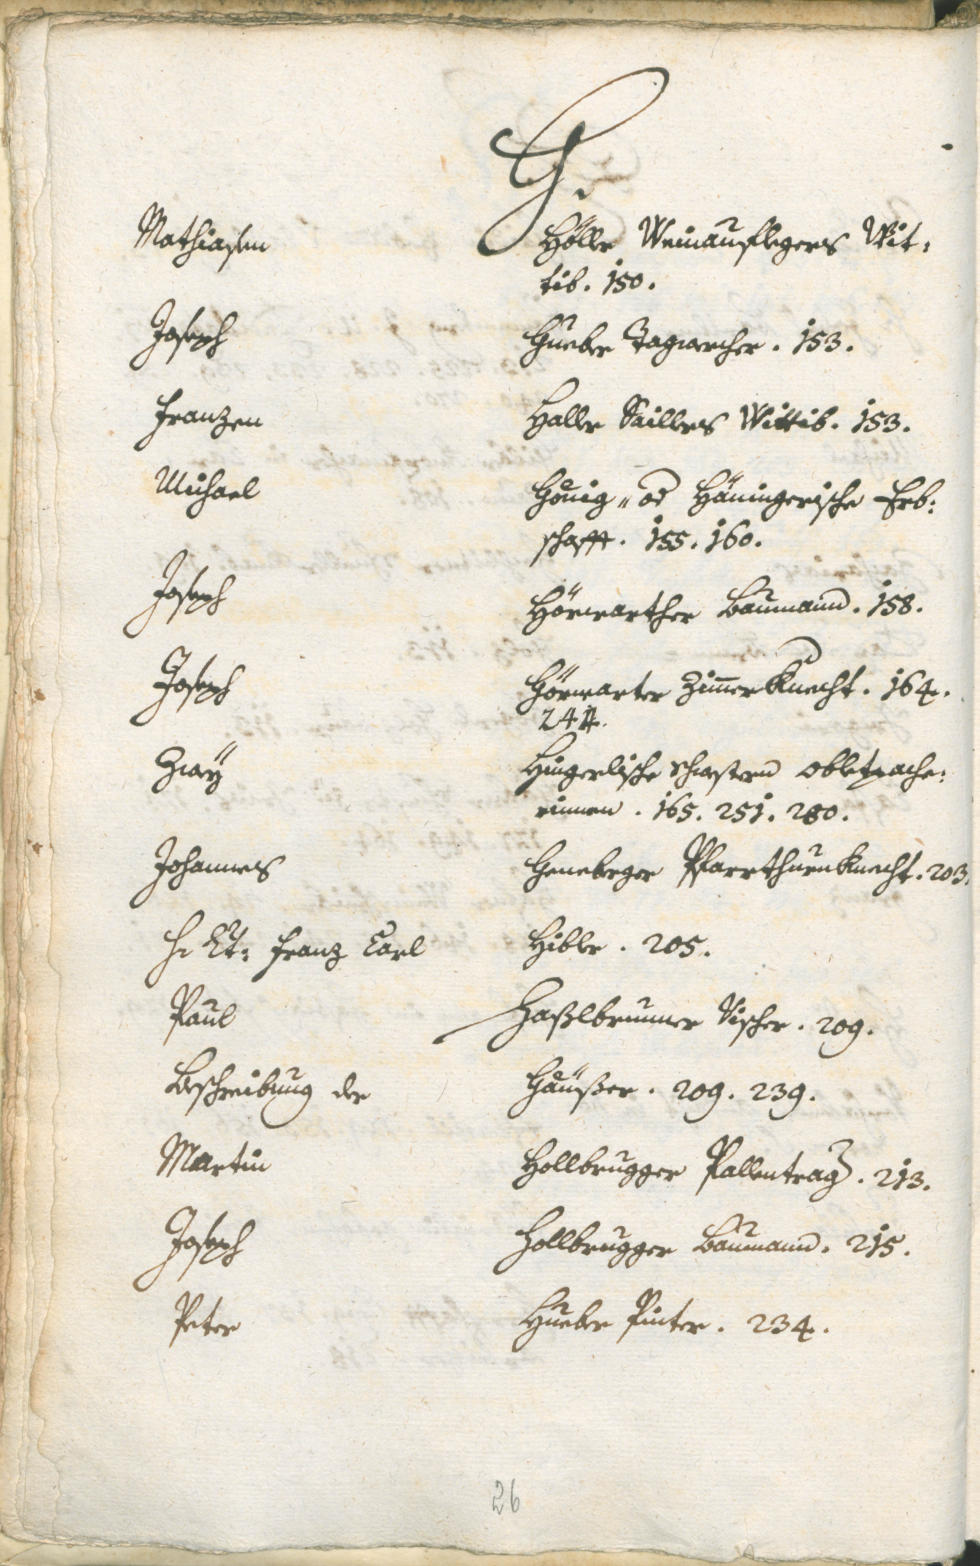 H.
Mathiasen Höller Weinauflegers Wit:
tib. 150.
Joseph Hueber Tagwercher. 153.
Franzen Haller Saillers Wittib. 153.
Michael Hönig„ od Häningerische Erb:
schafft. 155. 160.
Joseph Hörwarther Baumann. 158.
Joseph Hörwarter Zimerknecht. 164.
244.
Zway Hingerlische Schwestern Obletrache:
rinnen. 165. 251. 280.
Johannes Heneberger Pfarrthurnknecht. 203.
H. Lt: Franz Carl Hibler. 205.
Paul Haßlbrunner Vischer. 209.
Beschreibung der Häußer. 209. 239.
Martin Hollbrugger Pallentrag. 213.
Joseph Hollbrugger Baumann. 215.
Peter Hueber Pinter. 234.
26